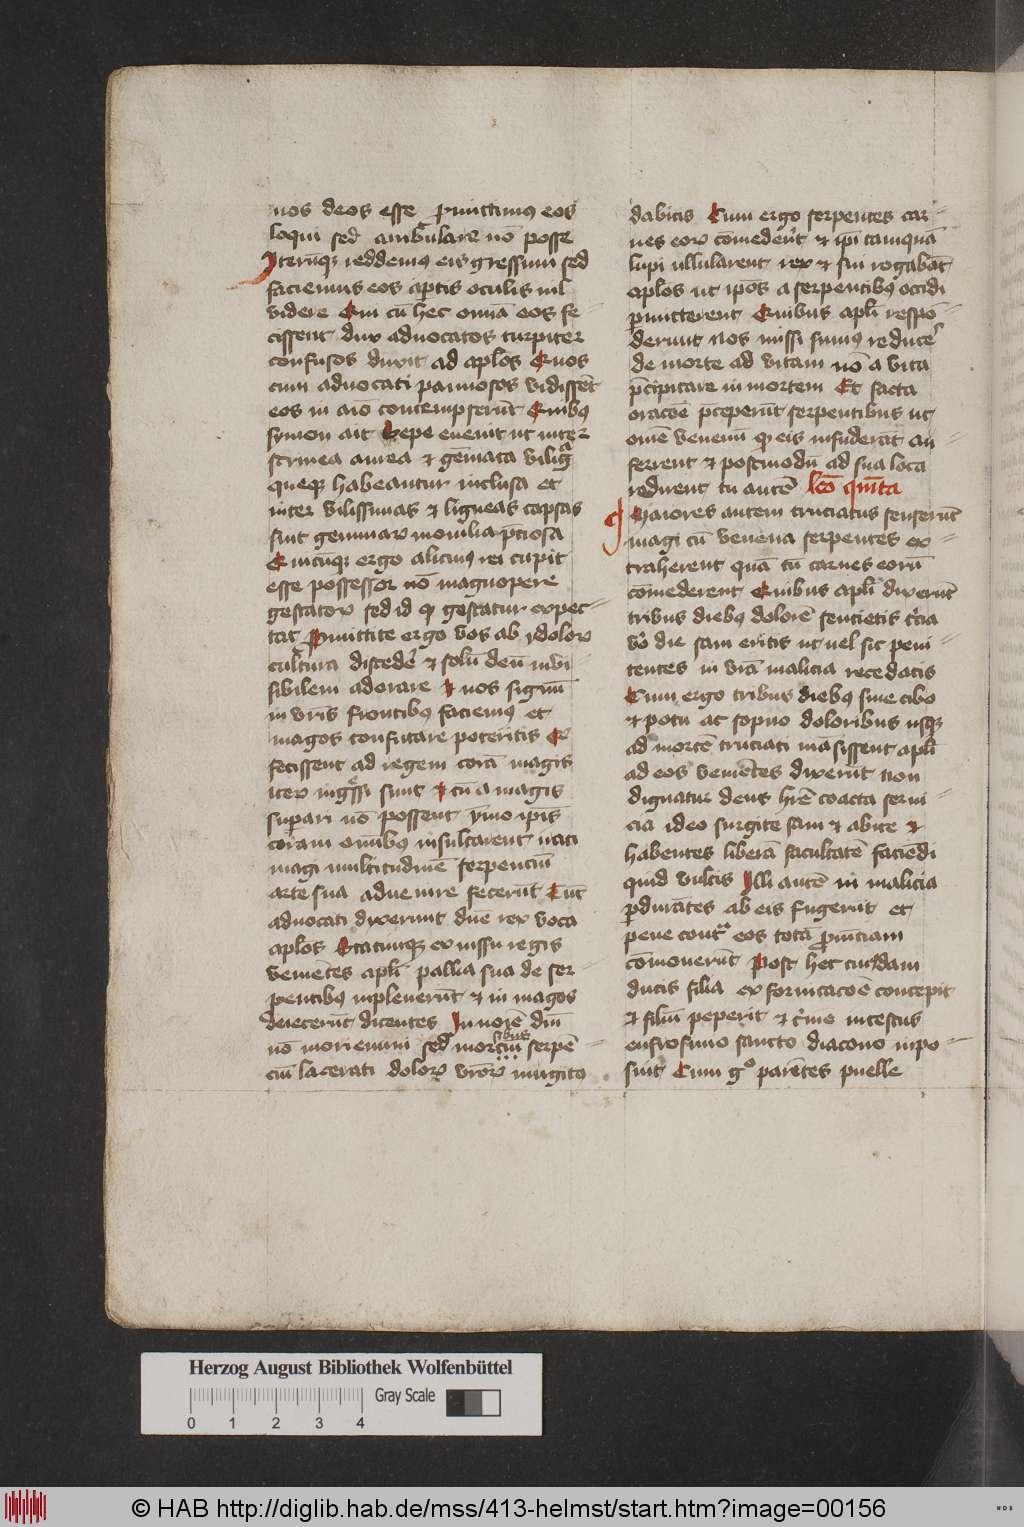 nos deos esse p̱mittimꝰ eos
loqui sed ambulare nō posse
Iterūqꝫ reddemꝰ eis gressum sed
faciemus eos apertis oculis nil
videre Qui cū hec omīa eos fe-
cissent dux aduocatos turpiter
confusos duxit ad aplōs Quos
cum aduocati pannosos vidissēt
eos in aīo contempserūt Quibꝰ
symon ait Sepe euenit ut inter
scrinea aurea et gemata vilia
queqꝫ habeantur inclusa et
inter vilissimas et ligneas capsas
sint gemmarꝝ monilia p̄ciosa
Quicūqꝫ ergo alicuiꝰ rei cupit
esse possessor nō magnopere
gestatorꝫ sed id qd gestatur expec-
tat Promittite ergo vos ab ydolorꝝ
cultura discedē et solū deū invi-
sibilem adorare Et nos signū
in vr̄is frontibꝰ faciemꝰ et
magos confutare poteritis Et
fecissent ad regem corā magis
iterꝫ ingressi sunt Et cū a magis
superari nō possent ymo ipīs
coram omībꝰ insultarent irati
magi multitudinē serpenciū
arte sua aduenire fecerūt Cūt
aduocati dixerunt dn̄e rex voca
aplōs Statimqꝫ ex iussu regis
venientes aplī pallia sua de ser-
pentibꝰ impleuerūt et in magos
deiecerūt dicentes In noīe dn̄i
nō moriemini sed morsibus serpē-
ciū lacerati dolorꝫ vrōrꝫ mugitꝰ
dabitis Cum ergo serpentes car-
nes eorꝫ comederēt et ipī tamquā
lupi ullularent rex et sui rogabāt
aplōs ut ipōs a serpentibꝰ occidi
permitterent Quibus aplī respō-
derunt nos missi sumꝰ reducē
de morte ad vitam nō a vita
p̄cipitare in mortem Et facta
oracōe p̄ceperūt serpentibus ut
omē venenū qd eis infuderāt au-
ferrent et postmodū ad sua loca
redirent tu autē lēo quīta
Maiores autem cruciatus senserūt
magi cū venena serpentes ex-
traherent quā cū carnes eorū
cōmederent Quibus aplī dixerūt
tribus diebꝰ dolorē sentietis tercia
vō die sani eritis ut vel sic peni-
tentes in vrā malicia recedatis
Cum ergo tribus diebꝰ sine cibo
et potu ac sopno doloribus usqꝫ
ad mortē cruciati māsissent aplī
ad eos venientes dixerūt non
dignatur deus h'rē coacta servi-
cia ideo surgite sani et abite et
habentes liberā facultatē faciēdi
quid vultis Illi autē in malicia
perdurātes ab eis fugerūt et
pene contra eos totā prouīciam
cōmouerūt Post hec cuiusdam
ducis filia ex fornicacōe concepit
et filiū peperit et crīne incestus
eufrosino sancto diacono inpo-
suit Cum gͦ parētes puelle
Herzog August Bibliothek Wolfenbüttel
Gray Scale
0 1 2 3 4
© HAB http://diglib.hab.de/mss/413-helmst/start.htm?image=00156